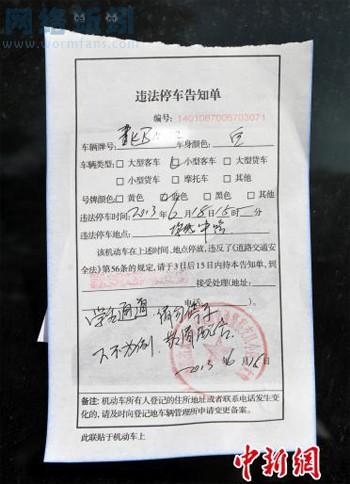 网络新闻
www.wormfans.com
违法停车告知单
编号: 1401087006703071
车辆牌号: 车身颜色: 白
车辆类型: □大型客车 □小型客车 □大型货车
□小型货车 □摩托车 □其他
号牌颜色: □黄色 □蓝色 □黑色 □其他
违法停车时间: 2013年6月15日15时 分
违法停车地点:
该机动车在上述时间、地点停放,违反了《道路交通安
全法》第56条的规定,请于3日后15日内持本告知单,到
接受处理(地址:
)。
学生通道 请勿停车
下不为例. 敬请配合.
2013年6月15日
备注: 机动车所有人登记的住所地址或者联系电话发生变
化的,请及时向登记地车辆管理所申请变更备案。
此联贴于机动车上
中新網